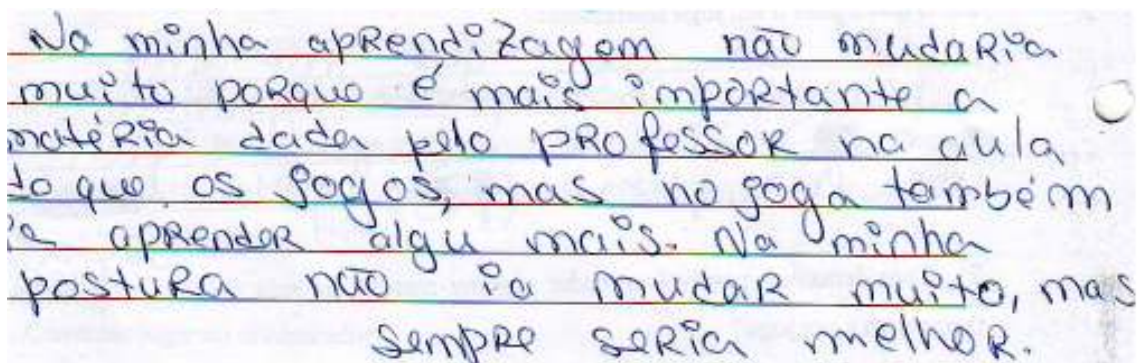 Na minha aprendizagem não mudaria
muito porque é mais importante a
matéria dada pelo professor na aula
do que os jogos, mas no joga também
aprender algu mais. Na minha
postura não ia mudar muito, mas
sempre seria melhor.